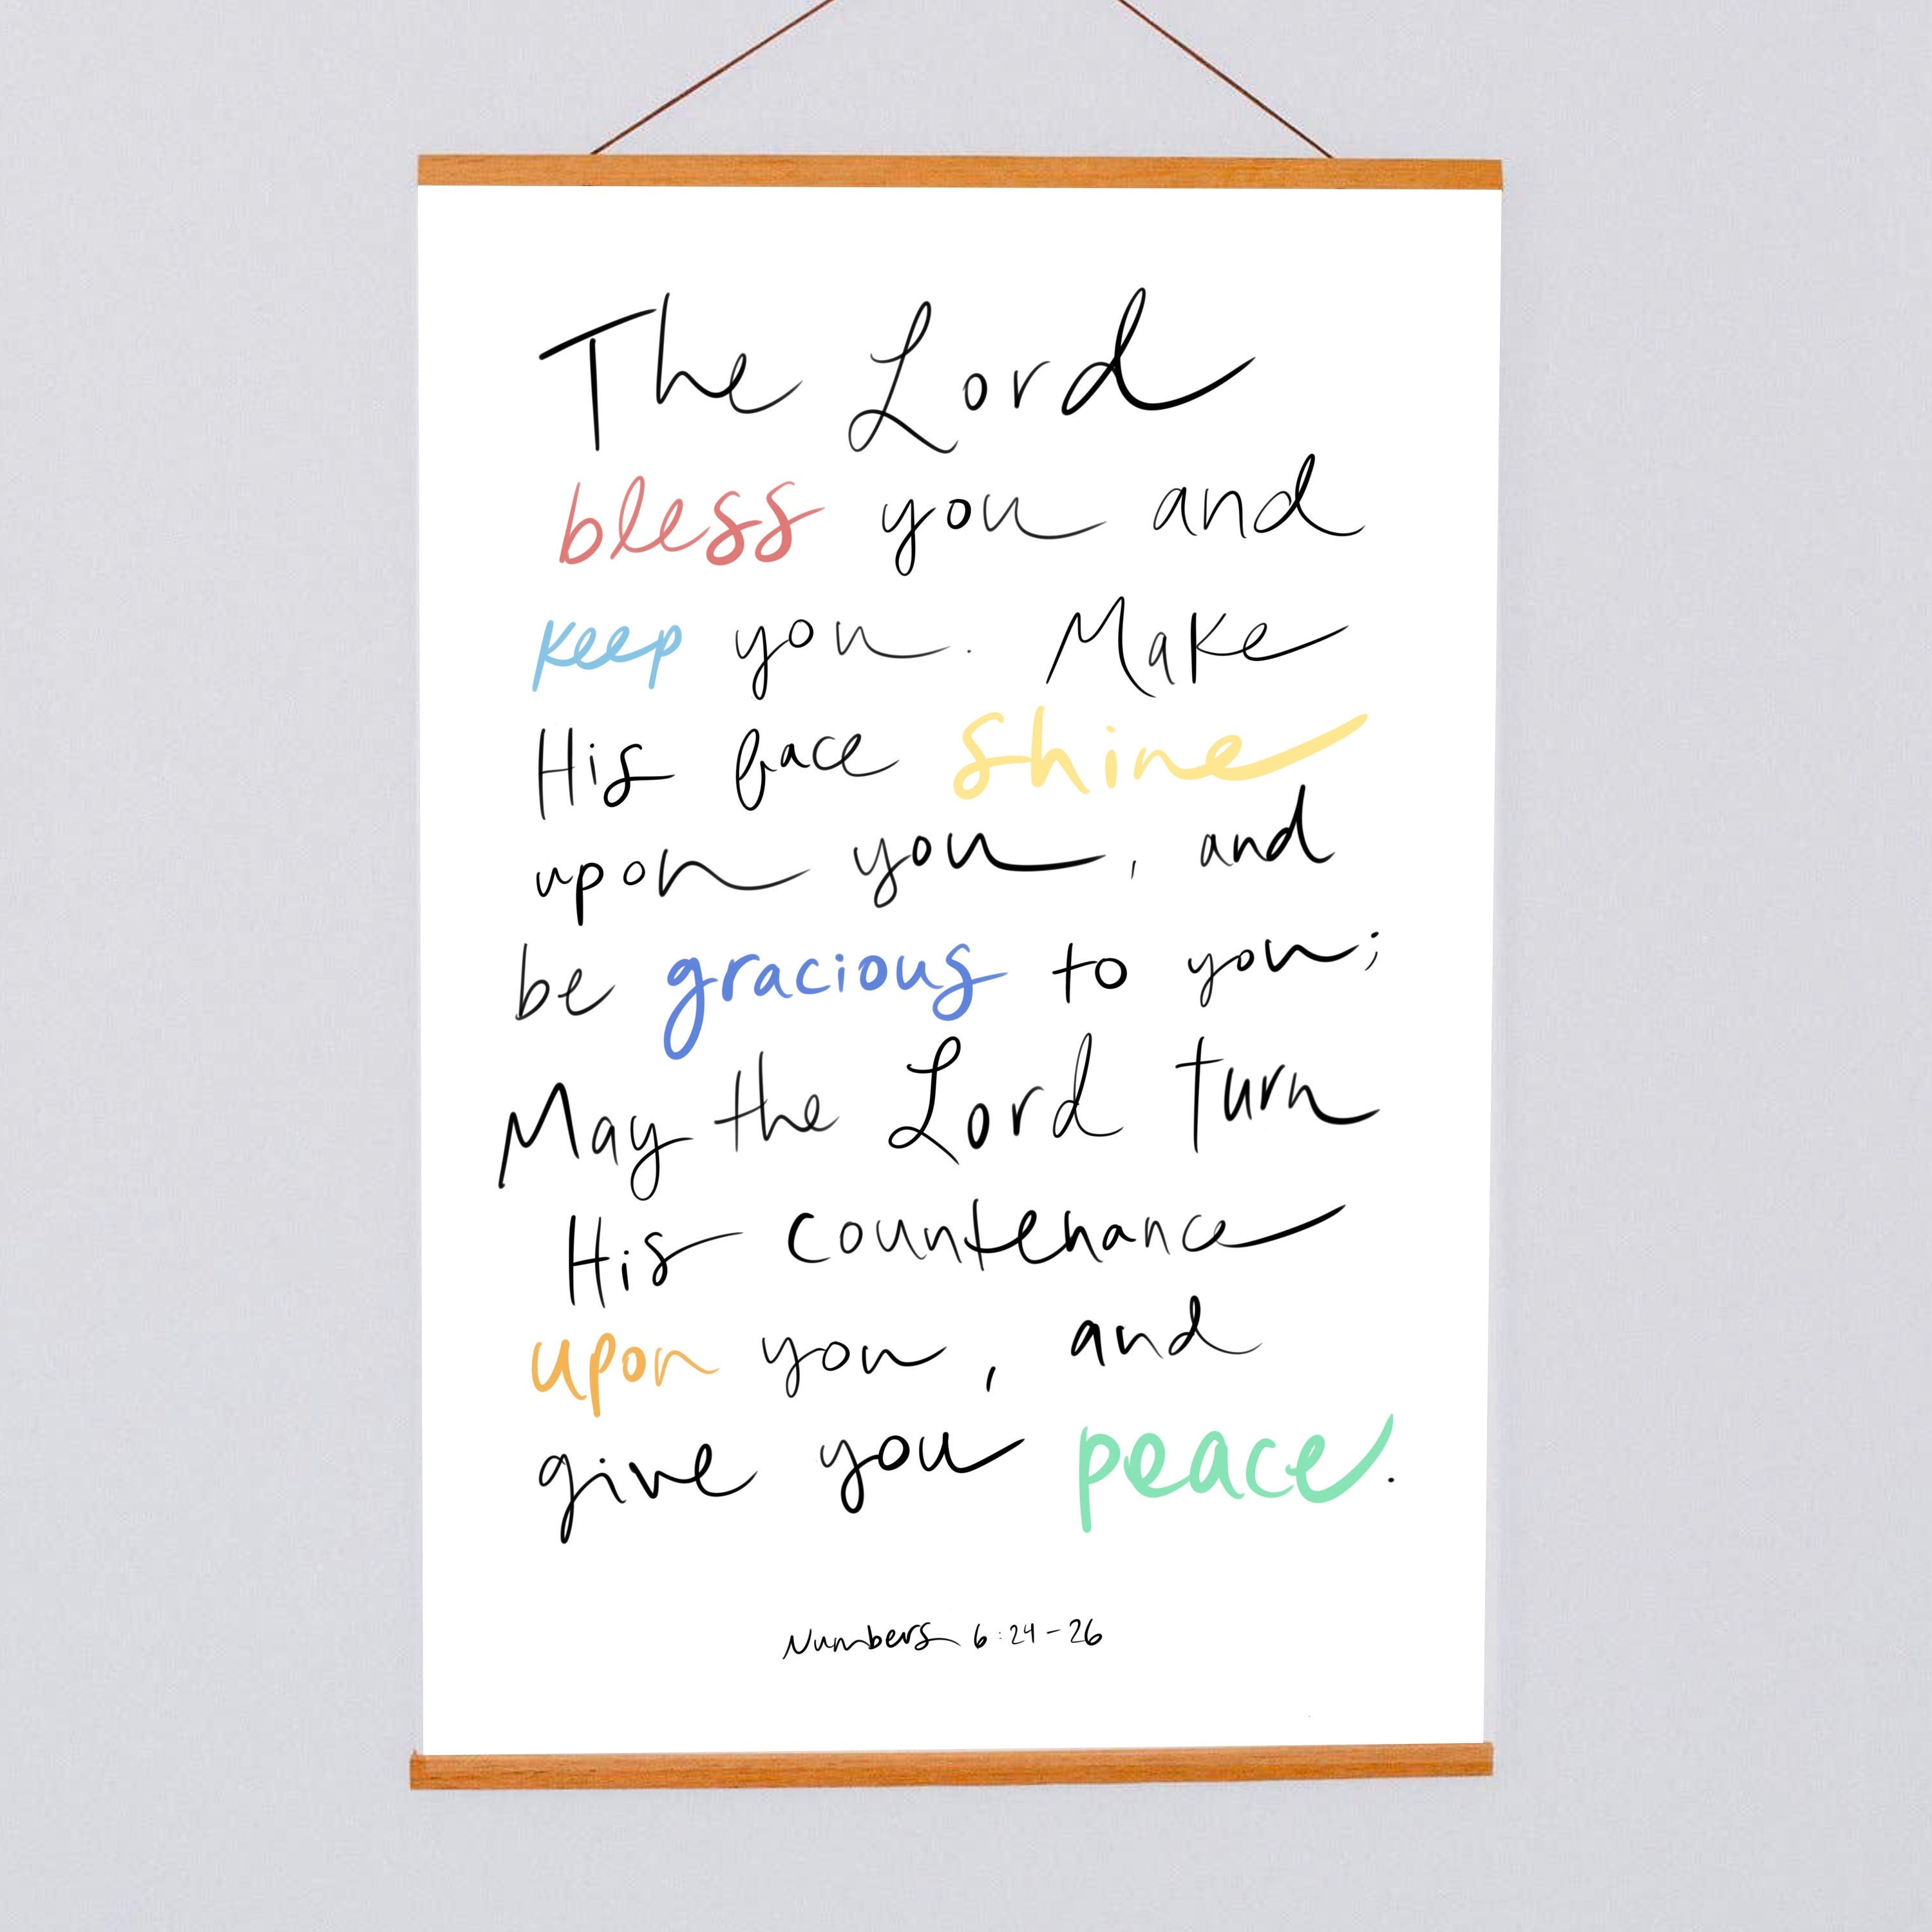 The Lord
bless you and
keep you. Make
His face shine
upon you, and
be gracious to you;
May the Lord turn
His countenance
upon you, and
give you peace.
Numbers 6:24-26